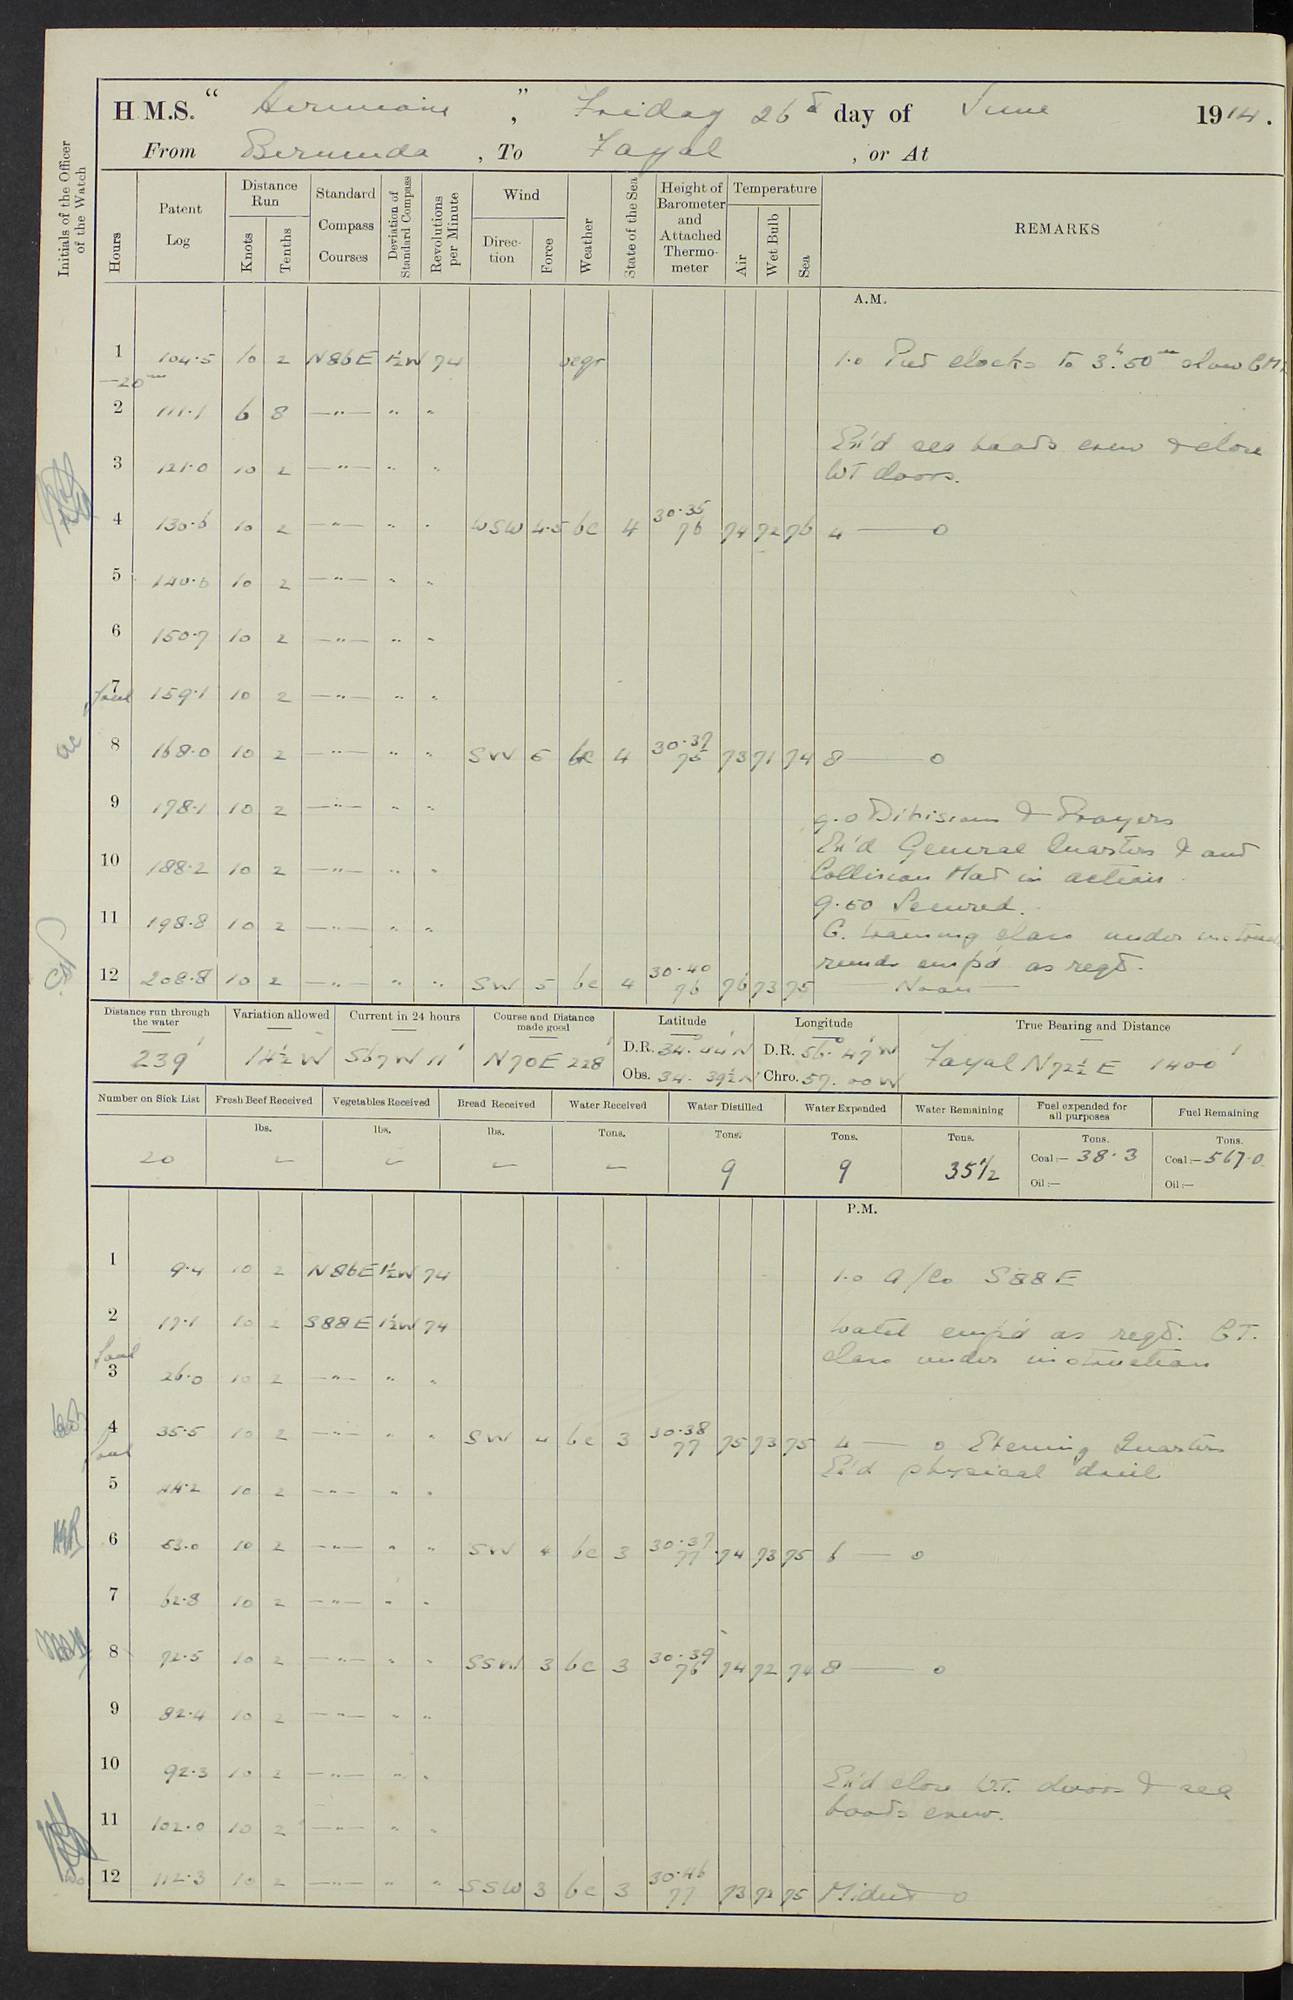 H.M.S. “ Hermione ”, Friday 26th day of June 1914.
From Bermuda , To Fayal , or At
Initials of the Officer of the Watch
Hours
Patent Log
Distance Run
Knots
Tenths
Standard Compass Courses
Deviation of Standard Compass
Revolutions per Minute
Wind
Direction
Force
Weather
State of the Sea
Height of Barometer and Attached Thermometer
Temperature
Air
Wet Bulb
Sea
REMARKS
A.M.
1 104.5 10 2 N86E 1½W 74 1.0 Put clocks to 3h.50m slow GMT
—20m
2 111.1 6 8 —"— " "
Ex'd sea boats crew & close
3 121.0 10 2 —"— " " WT doors.
4 130.6 10 2 —"— " " WSW 4.5 bc 4 30.35 76 74 72 76 4 — 0
5 140.6 10 2 —"— " "
6 150.7 10 2 —"— " "
7 159.1 10 2 —"— " "
foul
8 168.0 10 2 —"— " " SW 5 bc 4 30.37 75 73 71 74 8 — 0
9 178.1 10 2 —"— " " 9.0 Divisions & Prayers
Ex'd General Quarters & out
10 188.2 10 2 —"— " " Collision Mat in action
9.50 Secured.
11 198.8 10 2 —"— " " G. training class under instruction
remdr emp'd as reqd.
12 208.8 10 2 —"— " " SW 5 bc 4 30.40 76 76 73 75 — Noon —
Distance run through the water
239'
Variation allowed
14½ W
Current in 24 hours
S67W 11'
Course and Distance made good
N70E 228'
Latitude
D.R. 34. 44 N
Obs. 34. 39½ N
Longitude
D.R. 56. 47 W
Chro. 57. 00 W
True Bearing and Distance
Fayal N72½E 1400'
Number on Sick List
20
Fresh Beef Received
lbs.
—
Vegetables Received
lbs.
—
Bread Received
lbs.
—
Water Received
Tons.
—
Water Distilled
Tons.
9
Water Expended
Tons.
9
Water Remaining
Tons.
35½
Fuel expended for all purposes
Tons.
Coal:— 38.3
Oil:—
Fuel Remaining
Tons.
Coal:— 567.0
Oil:—
P.M.
1 9.4 10 2 N86E 1½W 74 1.0 A/Co S88E
2 17.1 10 2 S88E 1½W 74 Watch emp'd as reqd. GT.
foul class under instruction
3 26.0 10 2 —"— " "
4 35.5 10 2 —"— " " SW 4 bc 3 30.38 77 75 73 75 4 — 0 Evening Quarters
foul Ex'd physical drill
5 44.2 10 2 —"— " "
6 53.0 10 2 —"— " " SW 4 bc 3 30.37 77 74 73 75 6 — 0
7 62.8 10 2 —"— " "
8 72.5 10 2 —"— " " SSW 3 bc 3 30.39 76 74 72 74 8 — 0
9 82.4 10 2 —"— " "
10 92.3 10 2 —"— " "
Ex'd close W.T. doors & sea
11 102.0 10 2 —"— " " boats crew.
12 112.3 10 2 —"— " " SSW 3 bc 3 30.46 77 73 72 75 Midnt — 0